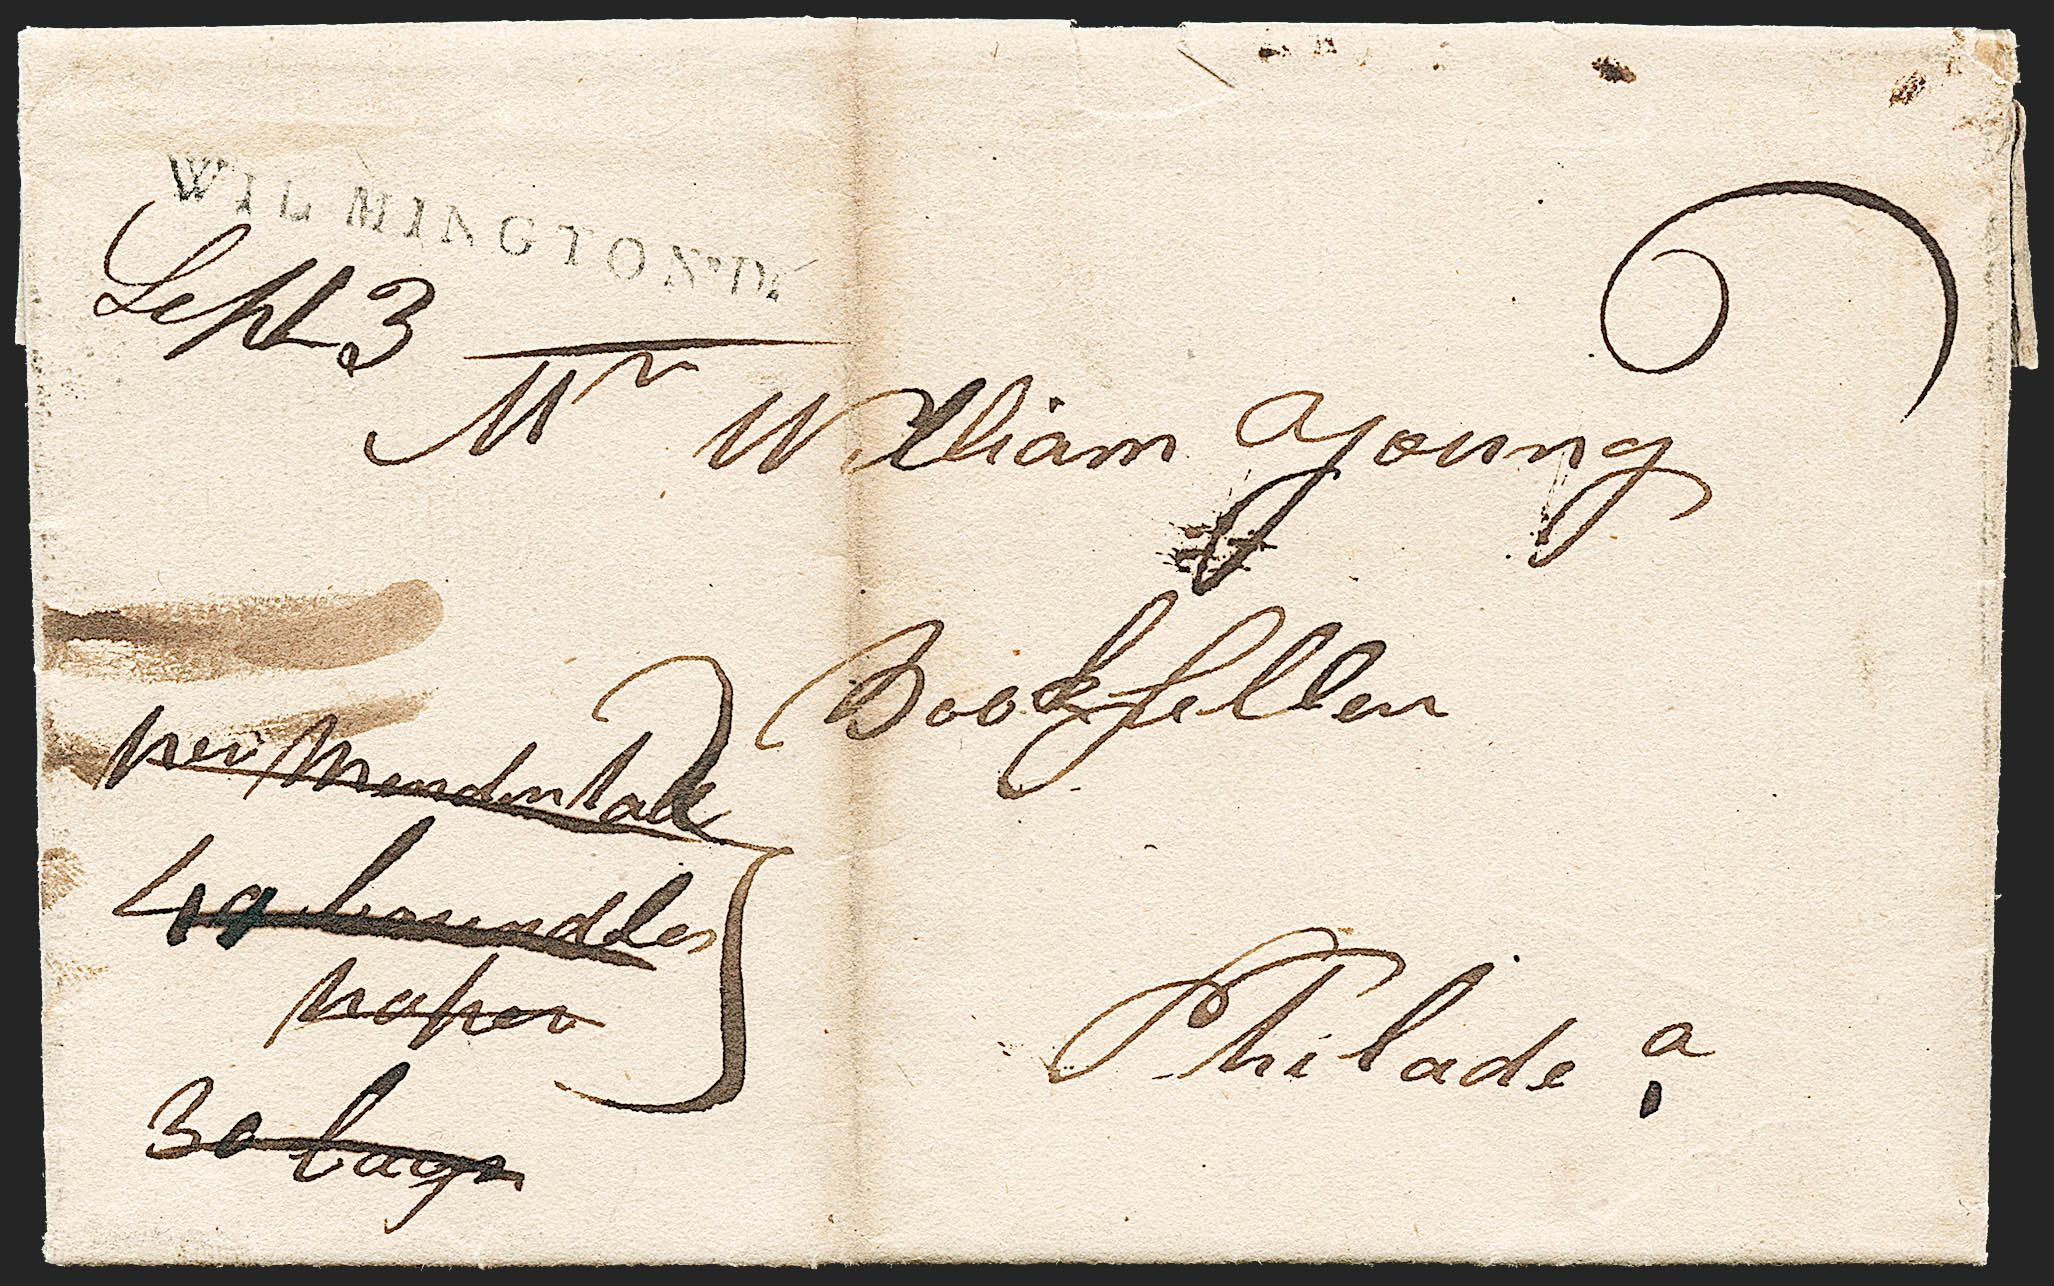 WILMINGTON*D*
Sept 3
Mr William Young
Bookseller
per Mendenhall
49 bundles
paper
30 bags
Philade a